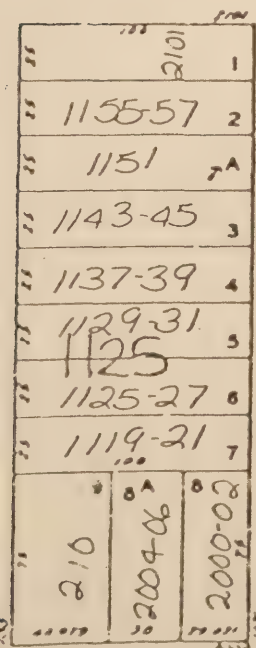 2101 1
1155-57 2
1151 A
1143-45 3
1137-39 4
1129-31 5
1125
1125-27 6
1119-21 7
100
A 8
8
210
2004-06
2000-02
50